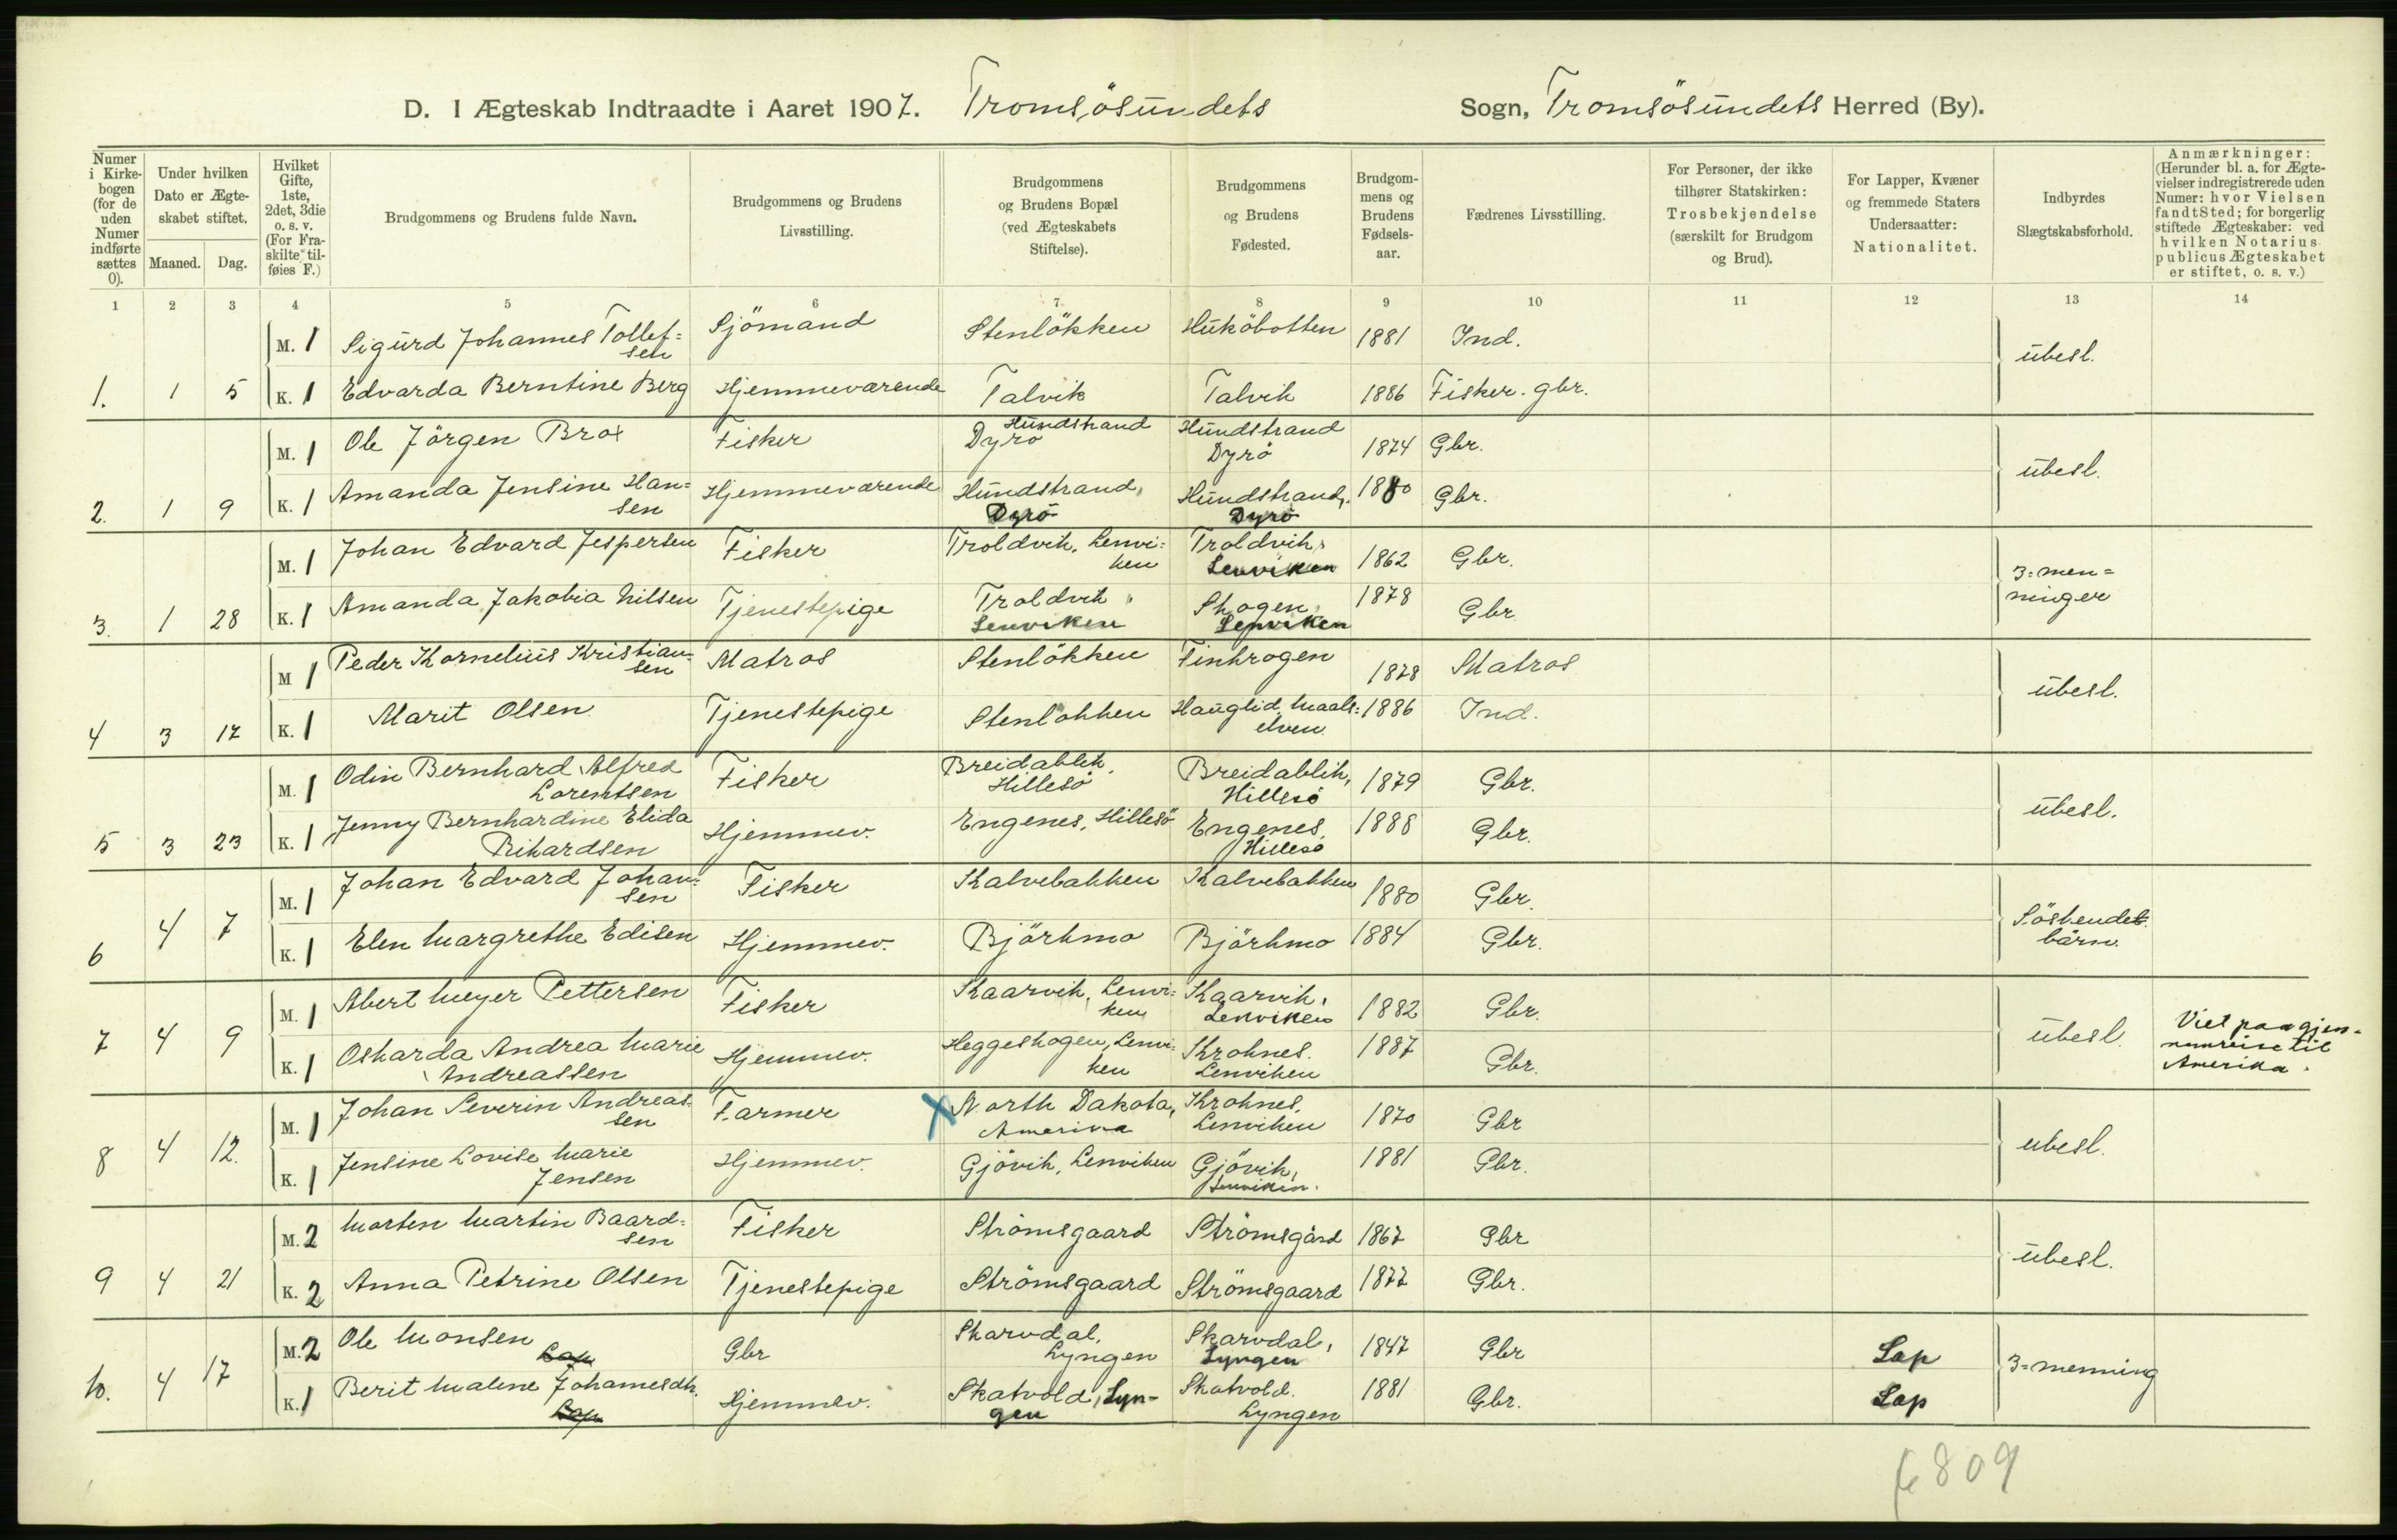 D. I Ægteskab Indtraadte i Aaret 1907. Tromsösundets Sogn, Tromsösundets Herred (By).
Numer i Kirkebogen (for de uden Numer indførte sættes 0).
Under hvilken Dato er Ægteskabet stiftet.
Maaned. Dag.
Hvilket Gifte, 1ste, 2det, 3die o. s. v. (For Fraskilte tilføies F.)
Brudgommens og Brudens fulde Navn.
Brudgommens og Brudens Livsstilling.
Brudgommens og Brudens Bopæl (ved Ægteskabets Stiftelse).
Brudgommens og Brudens Fødested.
Brudgommens og Brudens Fødselsaar.
Fædrenes Livsstilling.
For Personer, der ikke tilhører Statskirken: Trosbekjendelse (særskilt for Brudgom og Brud).
For Lapper, Kvæner og fremmede Staters Undersaatter: Nationalitet.
Indbyrdes Slægtskabsforhold.
Anmærkninger: (Herunder bl. a. for Ægtevielser indregistrerede uden Numer: hvor Vielsen fandt Sted; for borgerlig stiftede Ægteskaber: ved hvilken Notarius publicus Ægteskabet er stiftet, o. s. v.)
1 2 3 4 5 6 7 8 9 10 11 12 13 14
M. 1 Sigurd Johannes Tollefsen Sjömand Stenlökken Huköbotten 1881 Ind. ubesl.
1. 1 5 K. 1 Edvarda Berntine Berg Hjemmeværende Talvik Talvik 1886 Fisker. gbr.
M. 1 Ole Jörgen Brox Fisker Hundstrand Dyrö Hundstrand Dyrö 1874 Gbr. ubesl.
2. 1 9 K. 1 Amanda Jensine Hansen Hjemmeværende Hundstrand, Dyrö Hundstrand, Dyrö 1880 Gbr.
M. 1 Johan Edvard Jespersen Fisker Troldvik, Lenviken Troldvik, Lenviken 1862 Gbr. 3=menninger
3. 1 28 K. 1 Amanda Jakobia Nilsen Tjenestepige Troldvik, Lenviken Skogen, Lenviken 1878 Gbr
M 1 Peder Kornelius Kristiansen Matros Stenlökken Finkrogen 1878 Matros ubesl.
4 3 17 K. 1 Marit Olsen Tjenestepige Stenlökken Hauglid, Maalselven 1886 Ind.
M. 1 Odin Bernhard Alfred Lorentsen Fisker Breidablik, Hillesö Breidablik, Hillesö 1879 Gbr. ubesl.
5 3 23 K. 1 Jenny Bernhardine Elida Rikardsen Hjemmev. Engenes, Hillesö Engenes, Hillesö 1888 Gbr.
M. 1 Johan Edvard Johansen Fisker Kalvebakken Kalvebakken 1880 Gbr. Söskendebårn.
6 4 7 K. 1 Elen Margrethe Edisen Hjemmev. Björkmo Björkmo 1884 Gbr.
M. 1 Abert Meyer Pettersen Fisker Kaarvik, Lenviken Kaarvik, Lenviken 1882 Gbr. ubesl. Viet paa gjennemreise til Amerika.
7 4 9 K. 1 Oskarda Andrea Marie Andreassen Hjemmev. Heggeskogen, Lenviken Kroknes. Lenviken 1887 Gbr.
M. 1 Johan Severin Andreassen Farmer X North Dakota, Amerika Kroknes, Lenviken 1870 Gbr ubesl.
8 4 12. K. 1 Jensine Lovise Marie Jensen Hjemmev. Gjövik, Lenviken Gjövik, Lenviken. 1881 Gbr.
M. 2 Morten Martin Baardsen Fisker Strömsgaard Strömsgård 1867 Gbr ubesl.
9 4 21 K. 2 Anna Petrine Olsen Tjenestepige Strömsgaard Strömsgaard 1877 Gbr.
M. 2 Ole Monsen Lap Gbr Skarvdal, Lyngen Skarvdal, Lyngen 1847 Gbr Lap 3=menning
10. 4 17 K. 1 Berit Malene Johannesdt. Lap Hjemmev. Skatvold, Lyngen Skatvold. Lyngen 1881 Gbr. Lap
6809